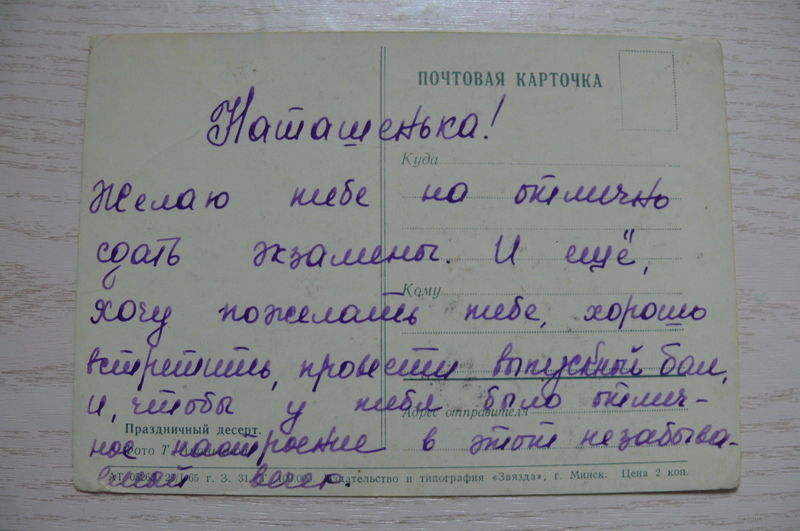 ПОЧТОВАЯ КАРТОЧКА
Наташенька!
Куда
Желаю тебе на отлично
сдать экзамены. И ещё,
Кому
хочу пожелать тебе, хорошо
встретить, провести выпускный бал,
и, чтобы у тебя было отлич-
Адрес отправителя
Праздничный десерт.
ное настроение в этот незабыва-
Фото Т.
емый вечер.
АТ 65 г. З. 31. Издательство и типография «Звязда», г. Минск. Цена 2 коп.